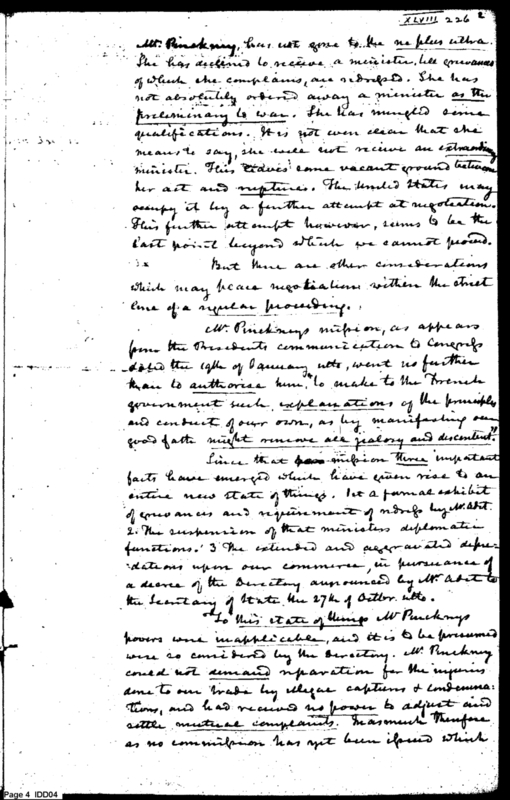 XLVIII 226 2
Mr. Pinckney, has not gone to the ne plus ultra.
She has declined to receive a minister, till grievances
of which she complains, are redressed. She has
not absolutely ordered away a minister as the
preliminary to war. She has mingled some
qualifications. It is not even clear that she
means to say, she will not receive an extraordinary
minister. This leaves some vacant ground between
her act and rupture. The United States may
occupy it by a further attempt at negotiation.
This further attempt however, seems to be the
last point beyond which we cannot proceed.
But there are other considerations
which may place negotiation within the strict
line of a regular proceeding.
Mr. Pinckneys mission, as appears
from the Presidents communication to Congress
dated the 19th of January ulto, went no further
than to authorise him, "to make to the French
government such explanations of the principles
and conduct of our own, as by manifesting our
good faith might remove all jealosy and discontent."
Since that mission three important
facts have emerged which have given rise to an
entire new state of things. 1st a formal exhibit
of grievances and requirement of redress by M. Adet.
2. The suspension of that ministers diplomatic
functions. 3 The extended and aggravated depre-
-dations upon our commerce, in pursuance of
a decree of the Directory announced by Mr. Adet to
the Secretary of State the 27th of Octbr. ulto.
To this state of things Mr Pinckneys
powers were inapplicable, and it is to be presumed
were so considered by the Directory. Mr. Pinckney
could not demand reparation for the injuries
done to our trade by illegal captures & condemna-
tions, and had received no power to adjust and
settle mutual complaints. Inasmuch therefore
as no commission has yet been issued which
Page 4 IDD04